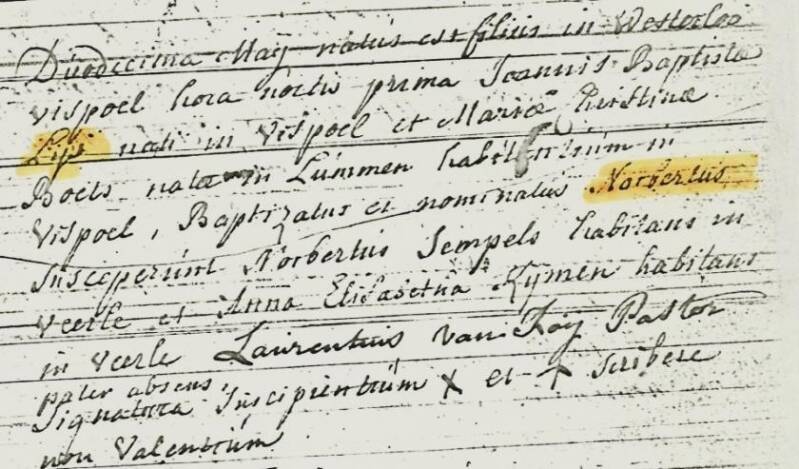 Duodecima May natus est filius in Westerloo
vispoel hora noctis prima Joannis Baptista
Lips nati in vispoel et Mariæ Christinæ
Boets natæ in Lummen habitantium in
vispoel, Baptizatus et nominatus Norbertus
susceperunt Norbertus Sempels habitans in
veerle et Anna Elisabetha Kymen habitans
in veerle Laurentius van Roy Pastor
pater absens,
signatura suscipientium x et + scribere
non valentium